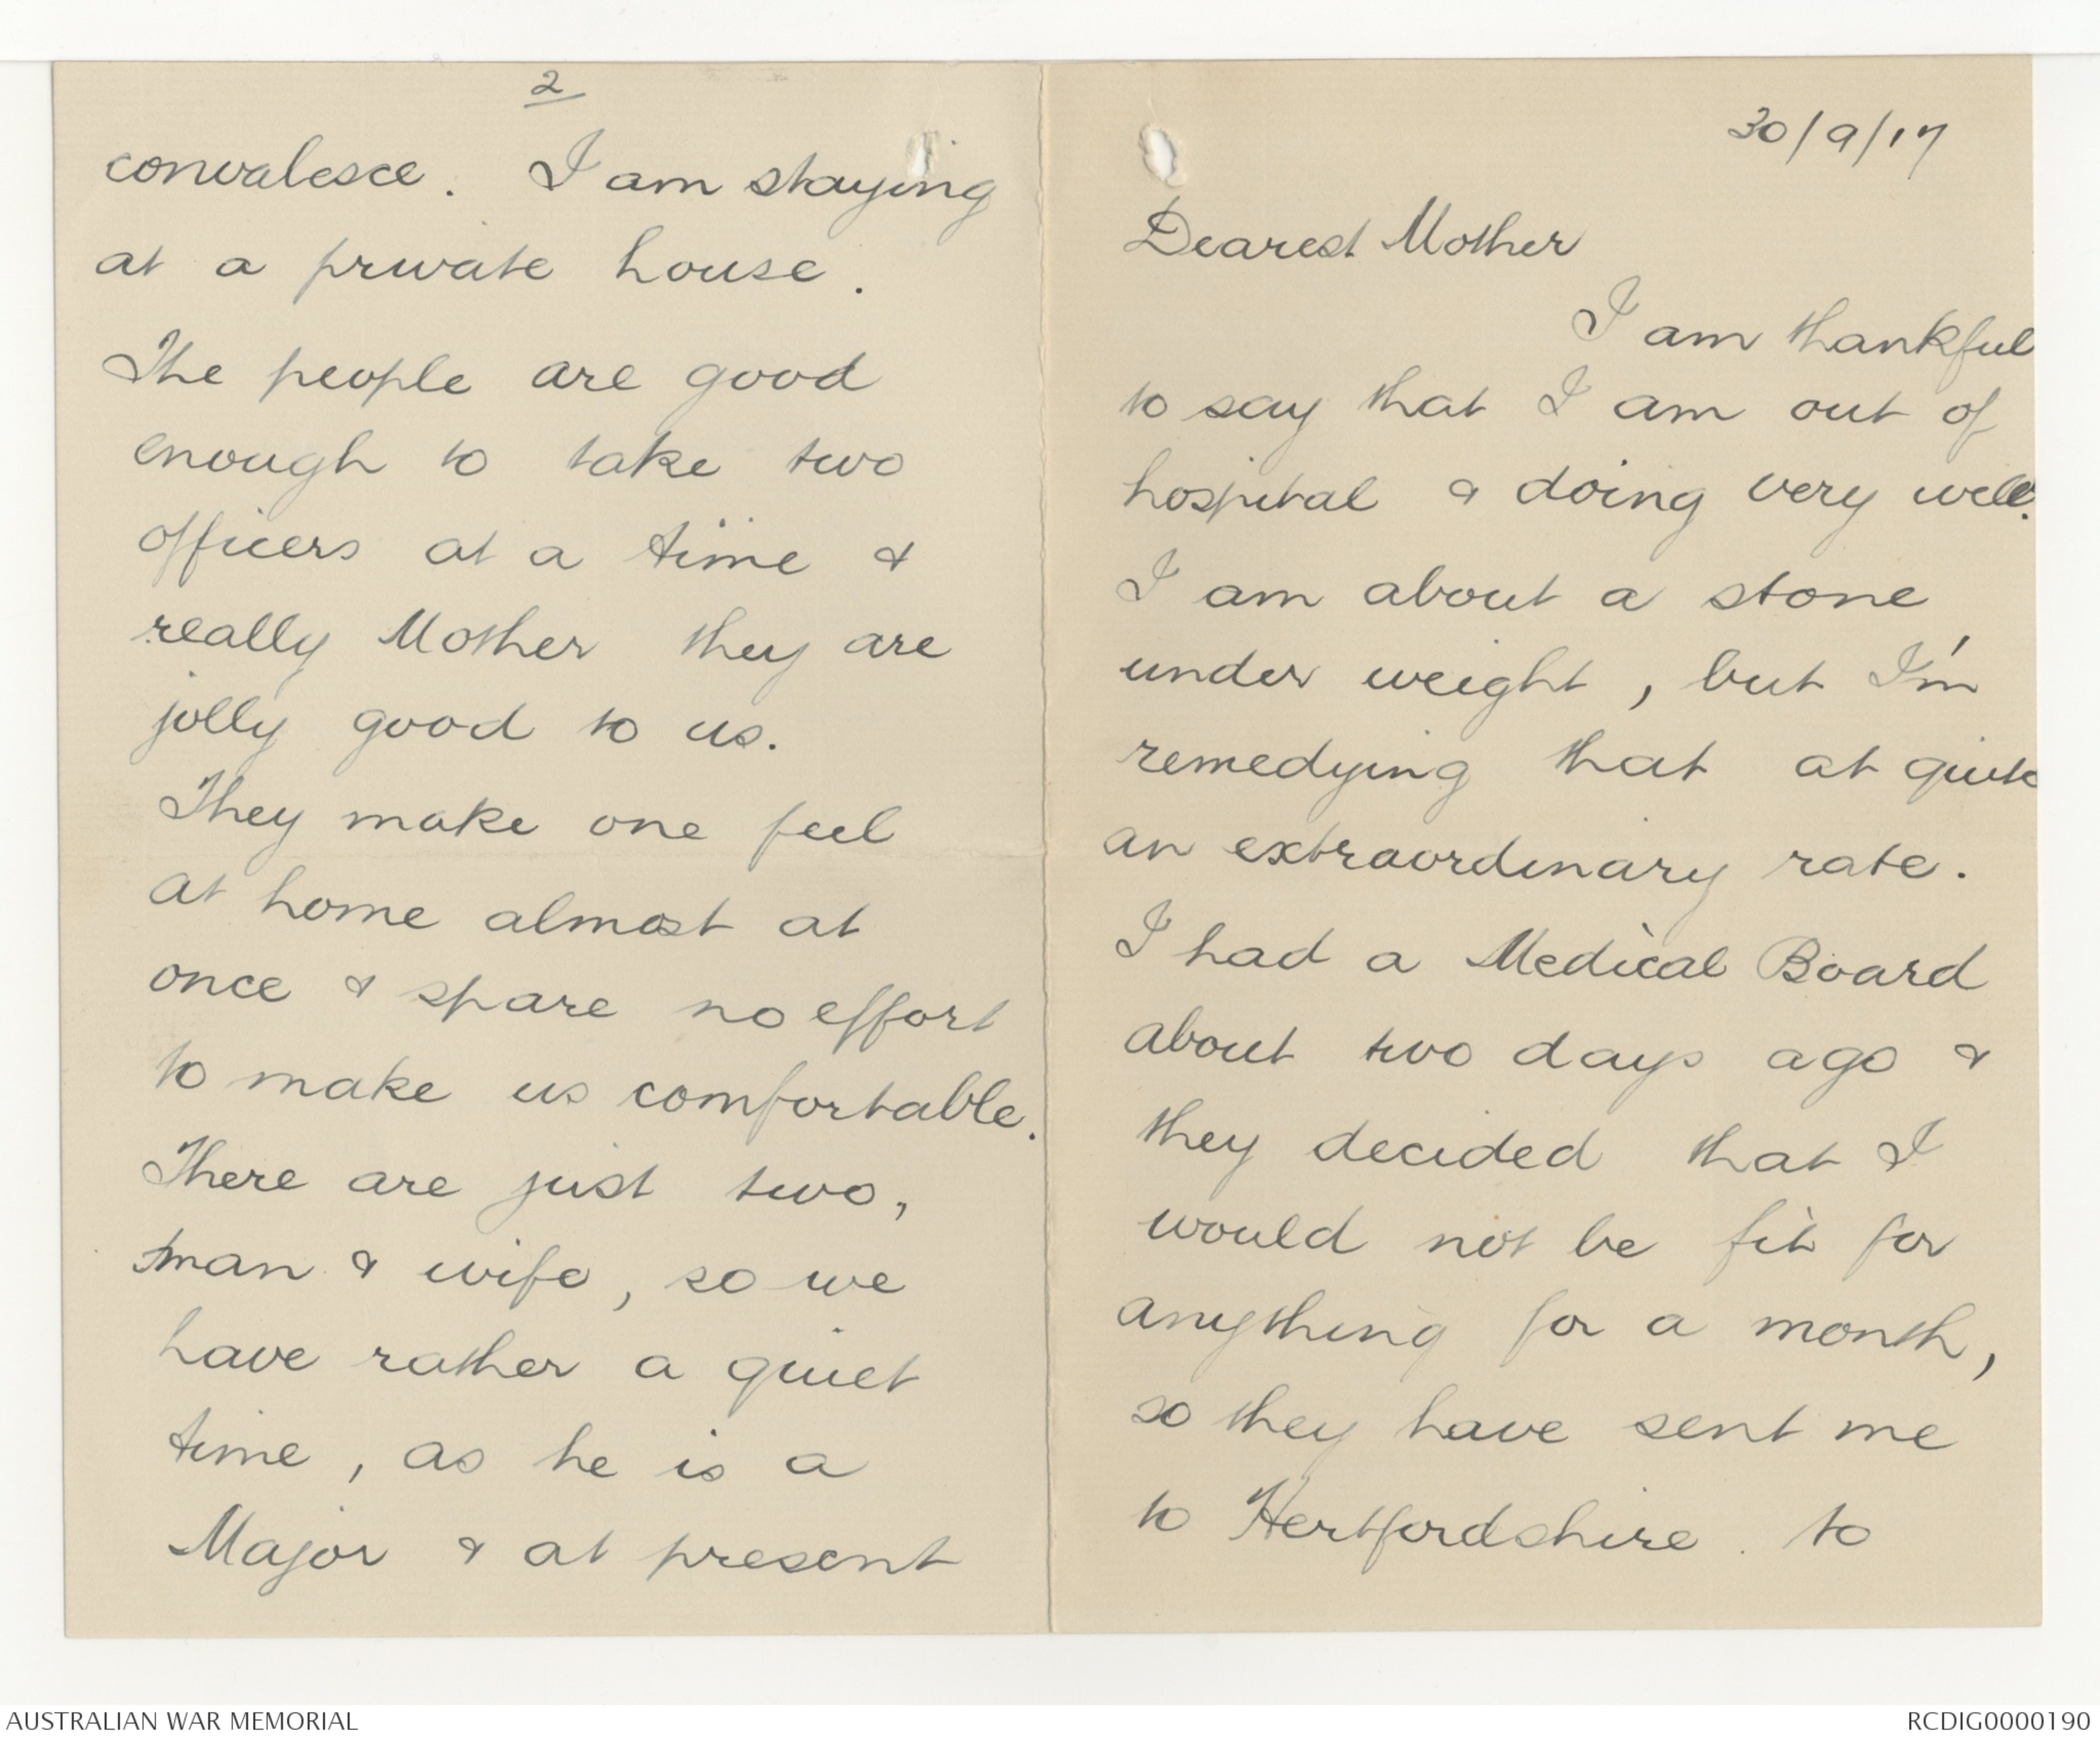 30/9/17
Dearest Mother
I am thankful
to say that I am out of
hospital & doing very well.
I am about a stone
under weight, but I'm
remedying that at quite
an extraordinary rate.
I had a Medical Board
about two days ago &
they decided that I
would not be fit for
anything for a month,
so they have sent me
to Hertfordshire. to
2
convalesce. I am staying
at a private house.
The people are good
enough to take two
officers at a time &
really Mother they are
jolly good to us.
They make one feel
at home almost at
once & spare no effort
to make us comfortable.
There are just two,
man & wife, so we
have rather a quiet
time, as he is a
Major & at present
AUSTRALIAN WAR MEMORIAL
RCDIG0000190